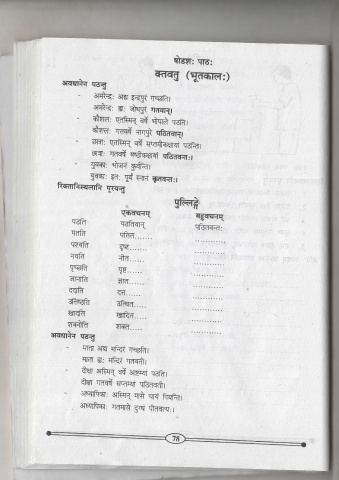 षोडशः पाठः
क्तवतु (भूतकालः)
अवधानेन पठन्तु
- अमरेन्द्रः अद्य इन्द्रपुरं गच्छति।
अमरेन्द्रः ह्यः जोधपुरं गतवान्।
- कौशलः एतस्मिन् वर्षे भोपाले पठति।
कौशलः गतवर्षे नागपुरे पठितवान्।
- छात्राः एतस्मिन् वर्षे सप्तमीकक्षायां पठन्ति।
छात्राः गतवर्षे षष्ठीकक्षायां पठितवन्तः।
- युवकाः भोजनं कुर्वन्ति।
युवकाः इतः पूर्वं स्नानं कृतवन्तः।
रिक्तानिस्थलानि पूरयन्तु
पुल्लिङ्गे
एकवचनम् बहुवचनम्
पठति पठितवान् पठितवन्तः
पतति पतित....... ..........
पश्यति दृष्ट....... ..........
नयति नीत...... ..........
पृच्छति पृष्ट....... ..........
जानाति ज्ञात...... ..........
ददाति दत्त...... ..........
उत्तिष्ठति उत्थित..... ..........
खादति खादित..... ..........
शक्नोति शक्त..... ..........
अवधानेन पठन्तु
- माता अद्य मन्दिरं गच्छति।
माता ह्यः मन्दिरं गतवती।
- दीक्षा अस्मिन् वर्षे अष्टम्यां पठति।
दीक्षा गतवर्षे सप्तम्यां पठितवती।
- अध्यापिकाः अस्मिन् मासे चायं पिबन्ति।
अध्यापिकाः गतमासे दुग्धं पीतवत्यः।
78